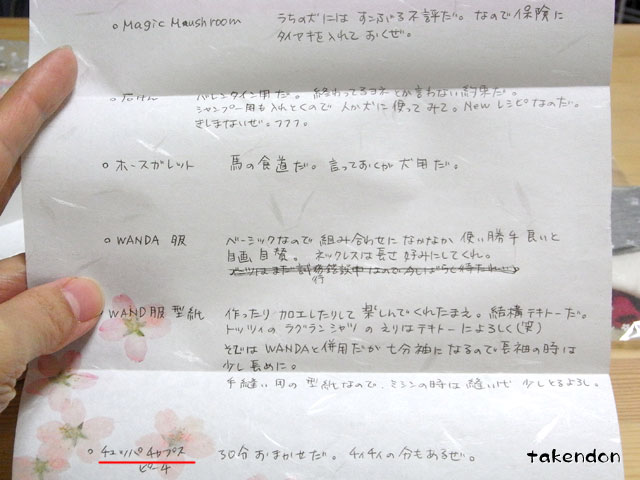 ○ Magic Maushroom うちの犬には すこぶる不評だ。なので保険に
ダイヤキを入れて おくぜ。
○ 石けん バレンタイン用だ。終わってるヨネとか言わない約束だ。
シャンプー用も入れとくので 人か犬に使ってみて。Newレシピなのだ。
きしまないぜ。フフフ。
○ ホースガレット 馬の食道だ。言っておくが犬用だ。
○ WANDA 服 ベーミックなので 組み合わせになかなか 使い勝手良いと
自画自賛。ネックレスは長さ 好みにしてくれ。
○ WAND服 型紙 作ったり 加工したりして 楽しんでくれたまえ。結構テキトーだ。
トッツィの ラグランシャツ の えりはテキトーによろしく(笑)
そではWANDAと併用だが 七分袖になるので 長袖の時は
少し長めに。
手縫い用の型紙なので、ミシンの時は縫い代 少しとるよろし。
○ チュッパチャプス 30分おまかせだ。チィチィの分もあるぜ。
ピーチ
takendon